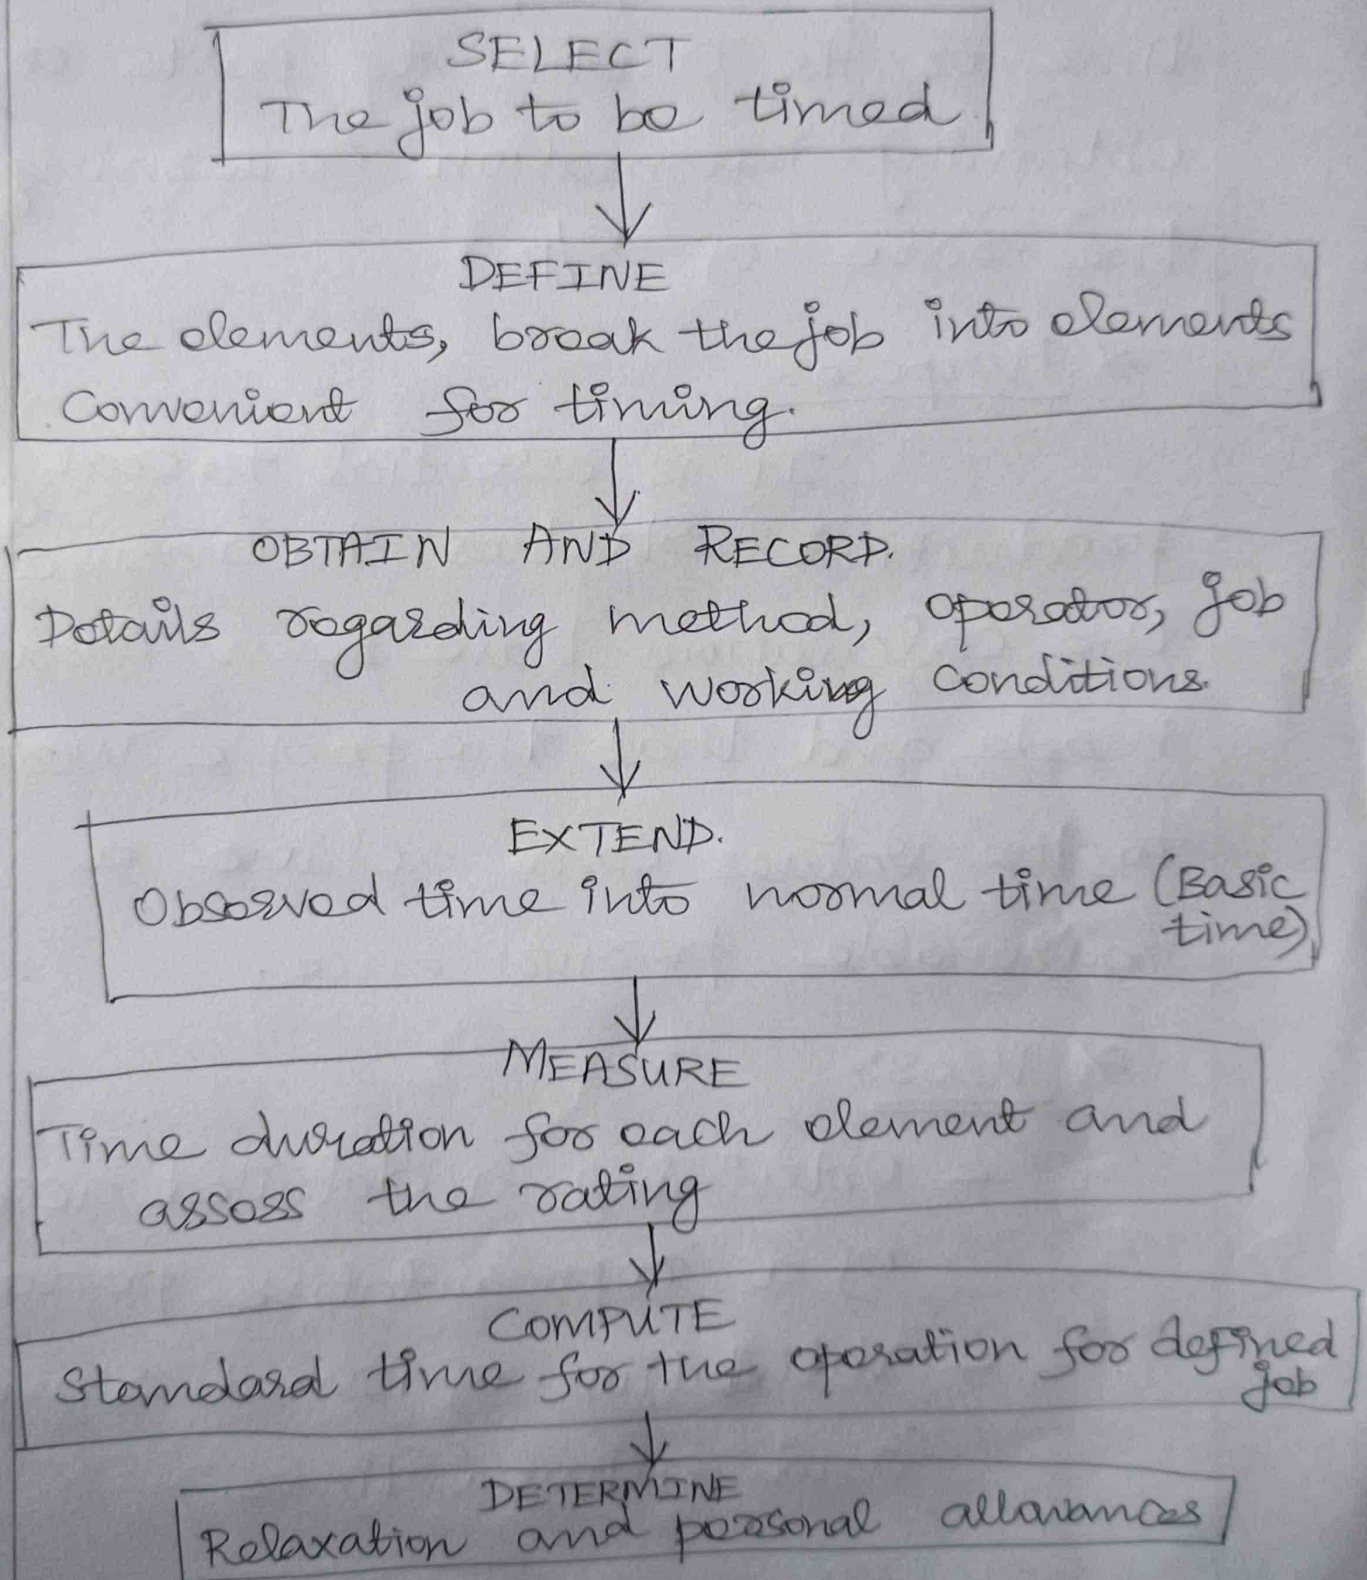 SELECT
The job to be timed
DEFINE
The elements, break the job into elements
Convenient for timing.
OBTAIN AND RECORD.
Details regarding method, operator, job
and working conditions.
EXTEND.
Observed time into normal time (Basic
time)
MEASURE
Time duration for each element and
assess the rating
COMPUTE
Standard time for the operation for defined
job
DETERMINE
Relaxation and personal allowances